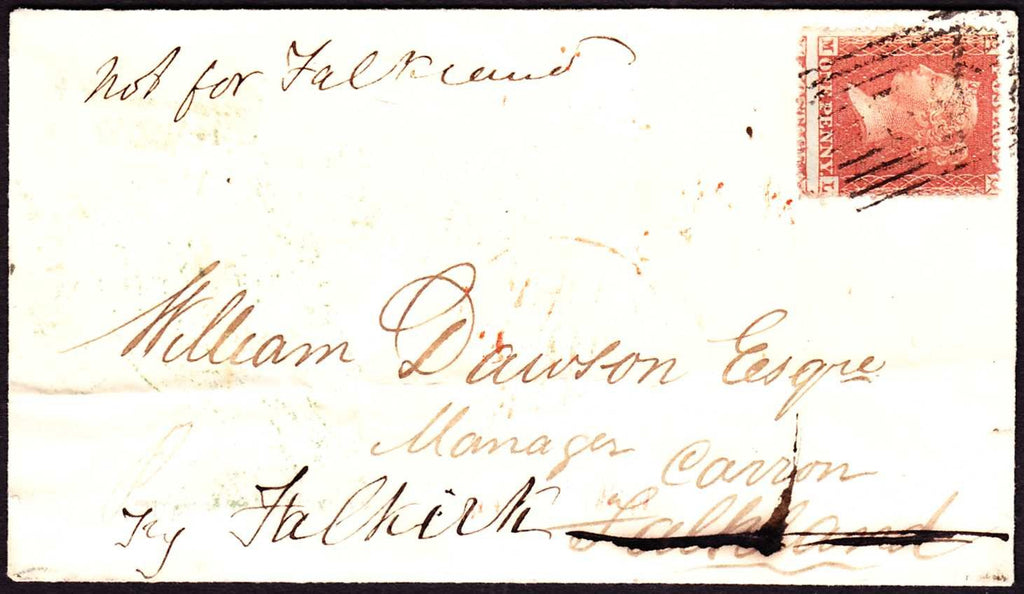 not for Falkland
ONE PENNY
William Dawson Esqre
Manager
Carron
Falkland
Try Falkirk